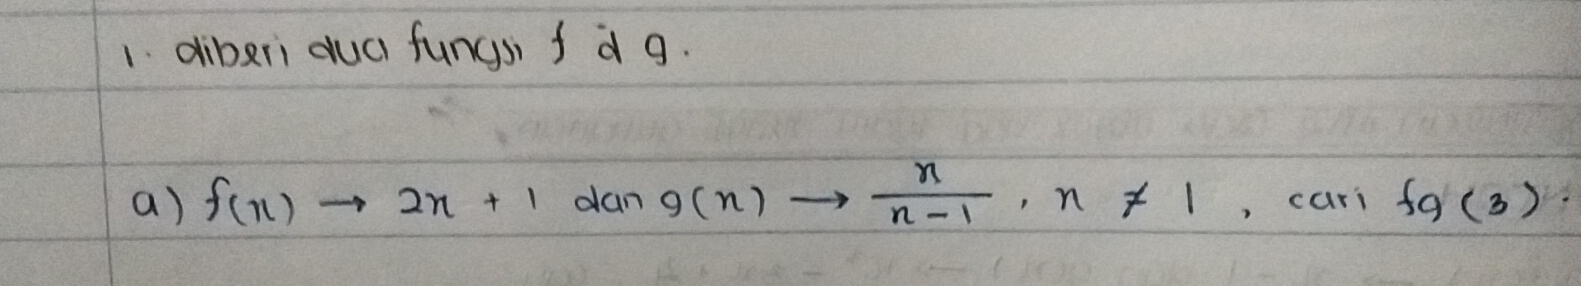 1. diberi dua fungsi f d g.
a) f(x) → 2x + 1 dan g(x) → x/(x-1), x ≠ 1, cari fg(3).